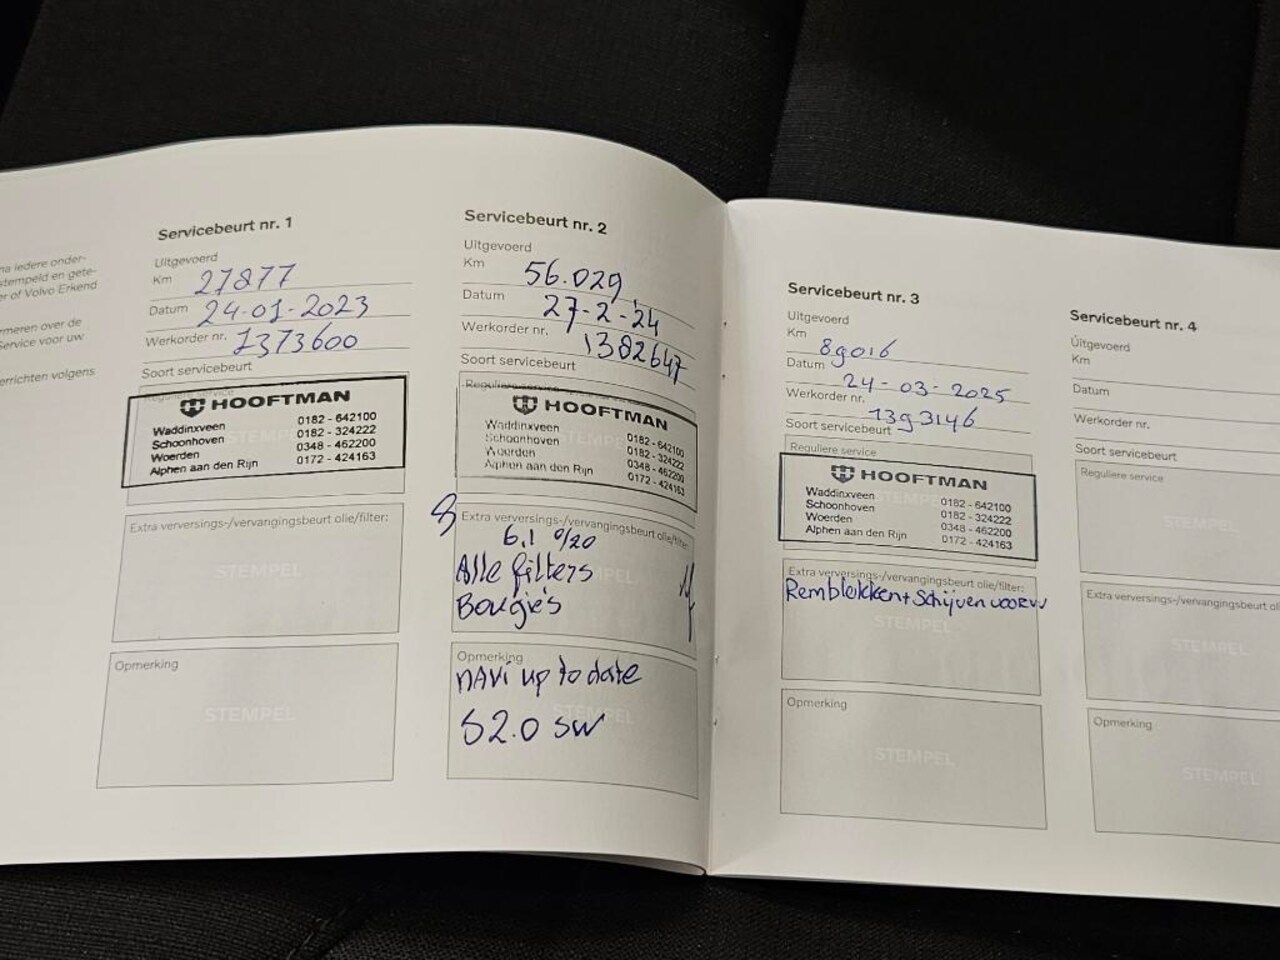 na iedere onder-
stempeld en gete-
er of Volvo Erkend
rmeren over de
Service voor uw
errichten volgens
Servicebeurt nr. 1
Uitgevoerd
Km 27877
Datum 24-01-2023
Werkorder nr. 1373600
Soort servicebeurt
Reguliere service
HOOFTMAN
Waddinxveen 0182 - 642100
Schoonhoven 0182 - 324222
Woerden 0348 - 462200
Alphen aan den Rijn 0172 - 424163
Extra verversings-/vervangingsbeurt olie/filter:
STEMPEL
Opmerking
STEMPEL
Servicebeurt nr. 2
Uitgevoerd
Km 56.029
Datum 27-2-24
Werkorder nr. 1382647
Soort servicebeurt
Reguliere service
HOOFTMAN
Waddinxveen 0182 - 642100
Schoonhoven 0182 - 324222
Woerden 0348 - 462200
Alphen aan den Rijn 0172 - 424163
Extra verversings-/vervangingsbeurt olie/filter:
6,1 0/20
Alle filters
Bougie's
Opmerking
NAVi up to date
S2.0 SW
Servicebeurt nr. 3
Uitgevoerd
Km 89016
Datum 24-03-2025
Werkorder nr. 1393146
Soort servicebeurt
Reguliere service
HOOFTMAN
Waddinxveen 0182 - 642100
Schoonhoven 0182 - 324222
Woerden 0348 - 462200
Alphen aan den Rijn 0172 - 424163
Extra verversings-/vervangingsbeurt olie/filter:
Remblokken + Schijven voor
STEMPEL
Opmerking
STEMPEL
Servicebeurt nr. 4
Uitgevoerd
Km
Datum
Werkorder nr.
Soort servicebeurt
Reguliere service
STEMPEL
Extra verversings-/vervangingsbeurt ol
STEMPEL
Opmerking
STEMPEL